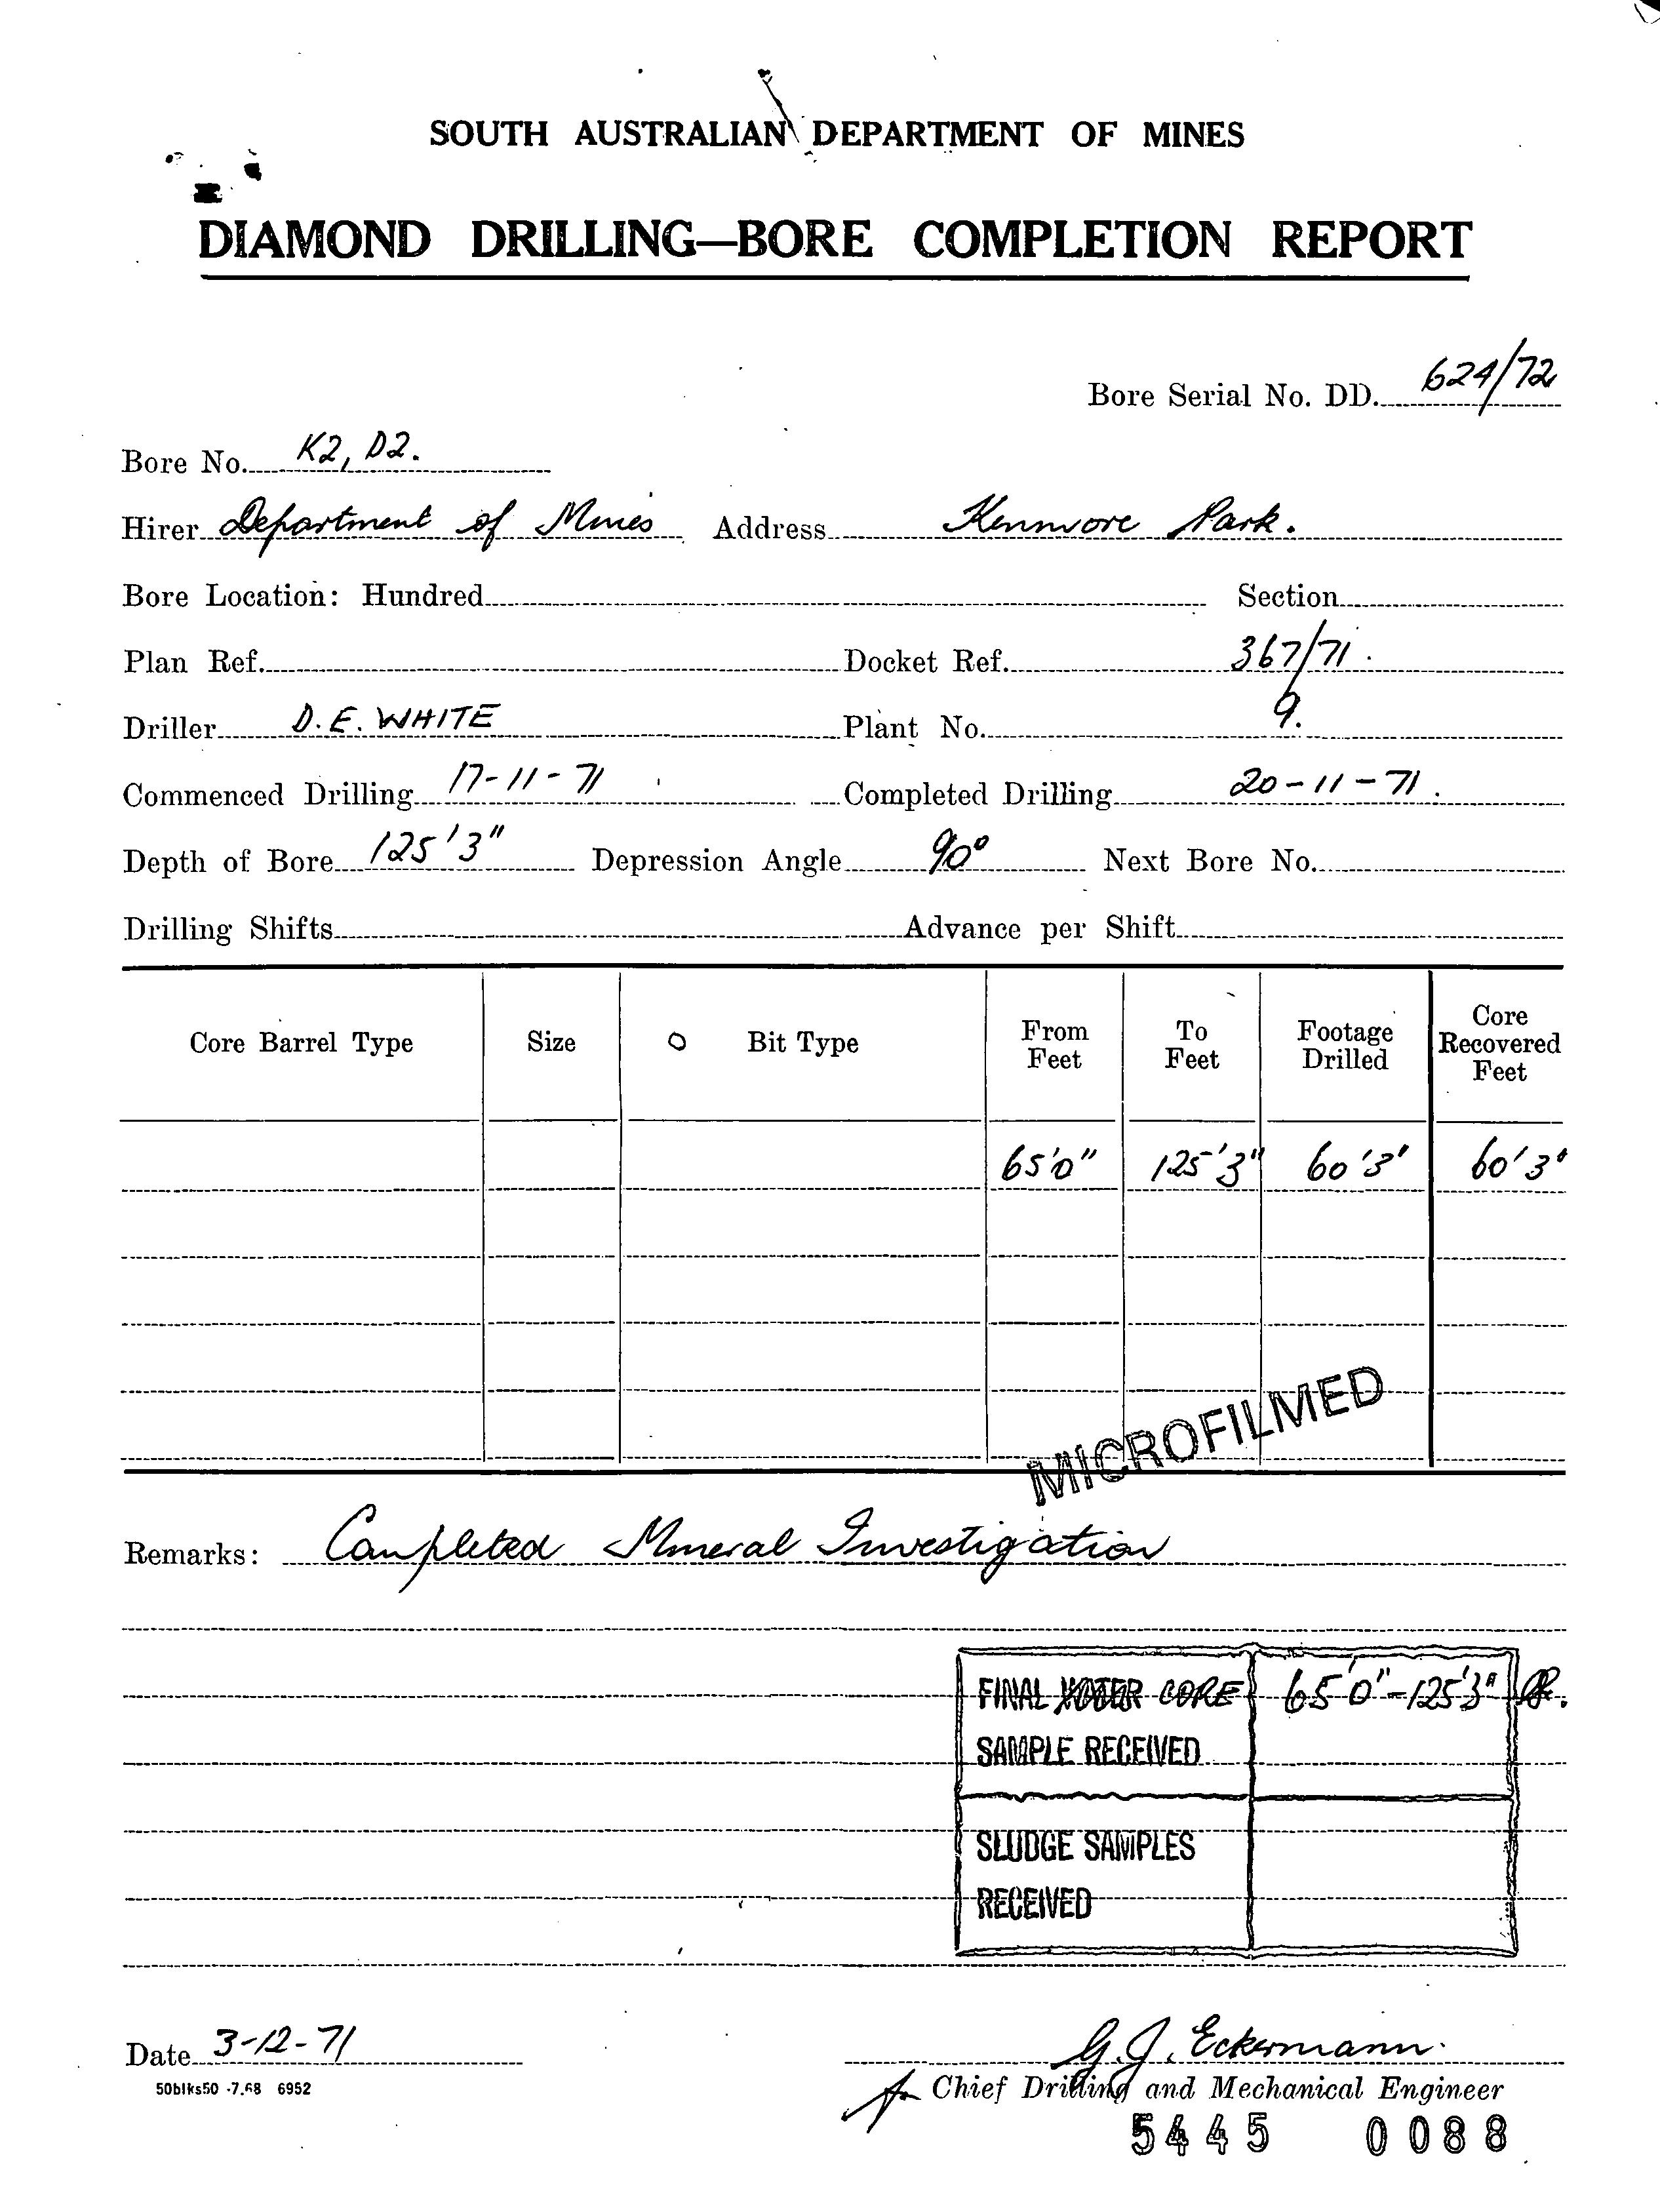 SOUTH AUSTRALIAN DEPARTMENT OF MINES
DIAMOND DRILLING—BORE COMPLETION REPORT
Bore Serial No. DD. 624/72
Bore No. K2, D2.
Hirer Department of Mines Address Kenmore Park.
Bore Location: Hundred Section
Plan Ref. Docket Ref. 367/71.
Driller D. E. WHITE Plant No. 9.
Commenced Drilling 17-11-71 Completed Drilling 20-11-71.
Depth of Bore 125'3" Depression Angle 90° Next Bore No.
Drilling Shifts Advance per Shift
Core Barrel Type Size O Bit Type From Feet To Feet Footage Drilled Core Recovered Feet
65'0" 125'3" 60'3" 60'3"
MICROFILMED
Remarks: Completed Mineral Investigation
FINAL CORE 65'0"-125'3"
SAMPLE RECEIVED
SLUDGE SAMPLES
RECEIVED
Date 3-12-71 G.J. Eckermann.
50blks50 -7.68 6952 for Chief Drilling and Mechanical Engineer
5445 0088